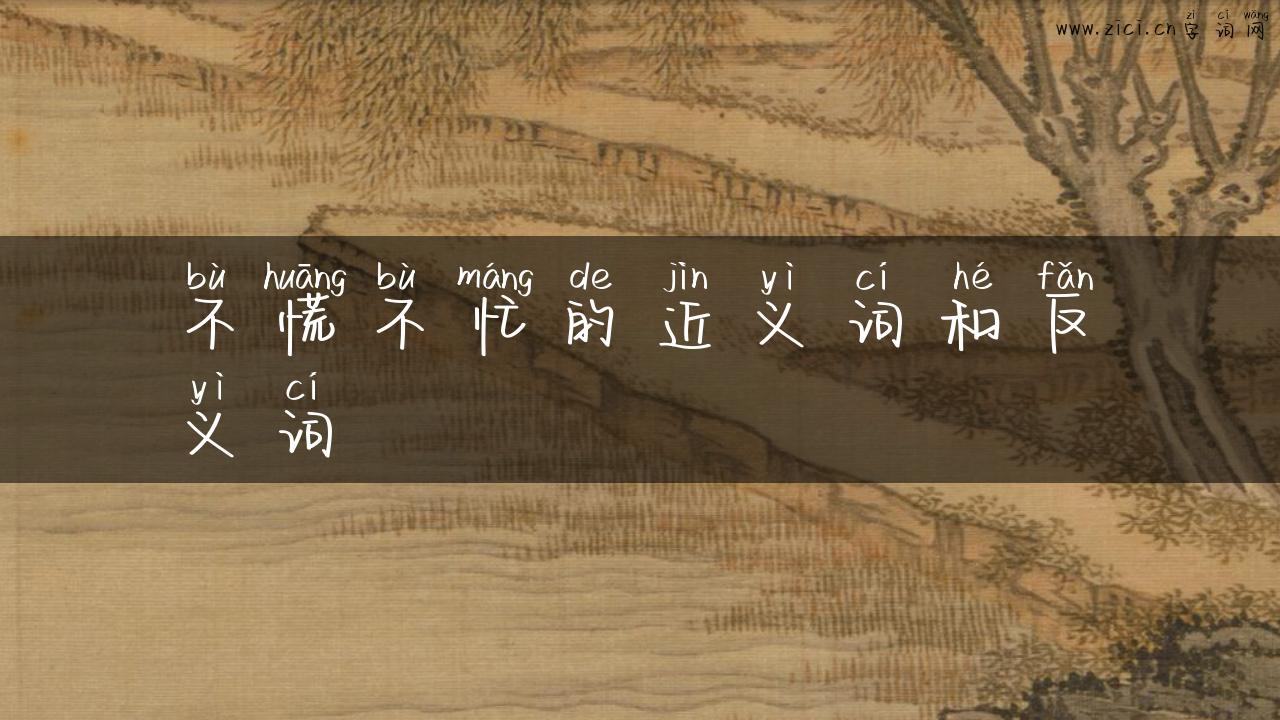 zì cí wǎng
www.zici.cn字词网
bù huāng bù máng de jìn yì cí hé fǎn
不慌不忙的近义词和反
yì cí
义词